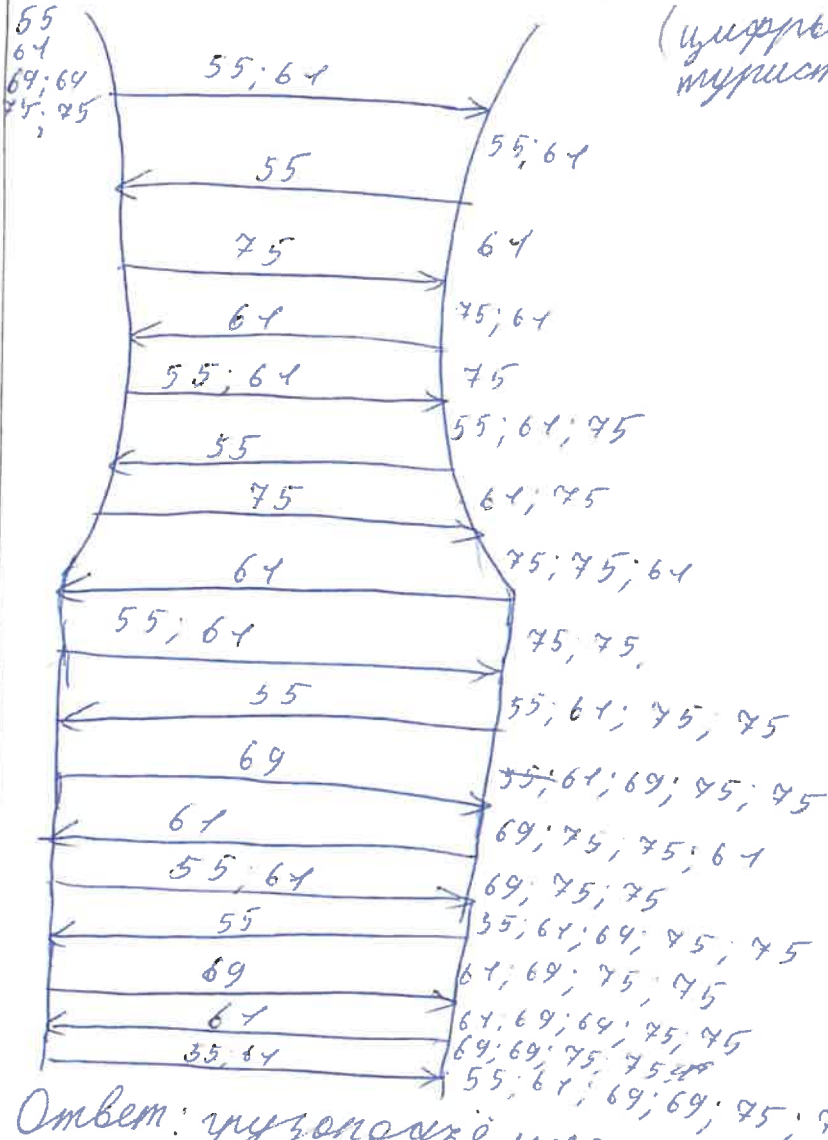 55
61
69; 69
75; 75
(цифры
турист
55; 61
55; 61
55
61
75
75; 61
61
75
55; 61
55; 61; 75
55
61; 75
75
75; 75; 61
61
75, 75
55; 61
55; 61; 75, 75
55
61; 69; 75; 75
69
69; 75, 75; 61
61
69; 75; 75
55, 61
55; 61; 69; 75; 75
55
61; 69; 75; 75
69
61; 69; 69; 75; 75
61
69; 69; 75; 75
55; 61
55; 61; 69; 69; 75;
Ответ: